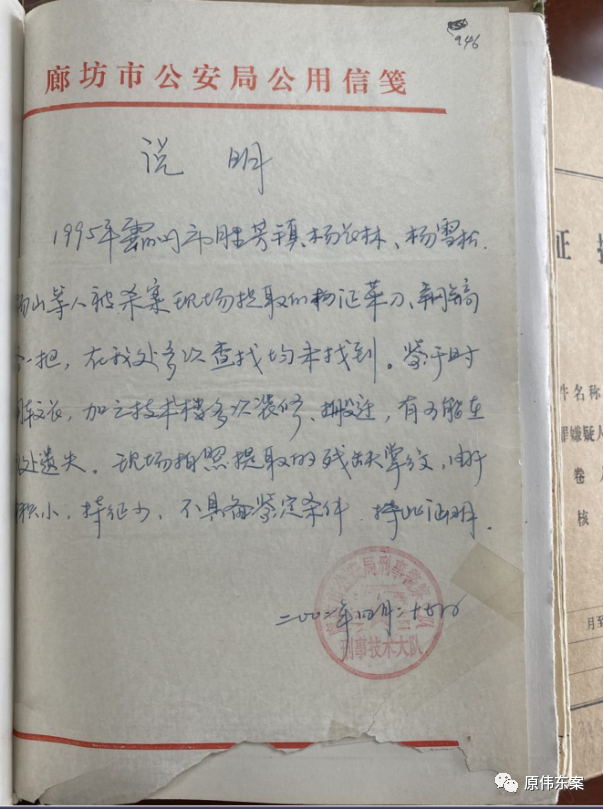 946
廊坊市公安局公用信笺
说 明
1995年霸州市胜芳镇杨 林、杨雪松、
山等人被杀案现场提取的物证菜刀、钢镐
一把，在我处多次查找均未找到。鉴于时
长，加之技术楼多次装修、搬迁，有可能在
处遗失。现场拍照提取的残缺掌纹，由于
积小，特征少，不具备鉴定条件。特此证明。
公安局刑事警察支队
刑事技术大队
二00二年四月二十 日
证
件名称
罪嫌疑人
卷
核
月至
原伟东案